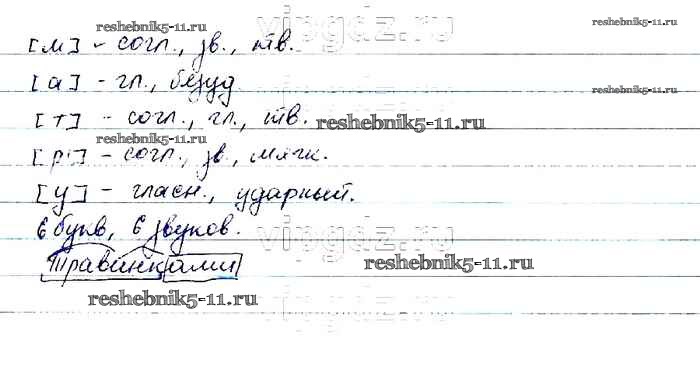 vipgdz.ru
reshebnik5-11.ru
reshebnik5-11.ru
[м] - согл., зв., тв.
[а] - гл., безуд
reshebnik5-11.ru
[т] - согл., гл., тв. reshebnik5-11.ru
reshebnik5-11.ru
[р'] - согл., зв., мягк.
[у] - гласн., ударный.
6 букв, 6 звуков.
vipgdz.ru
травинками
reshebnik5-11.ru
reshebnik5-11.ru